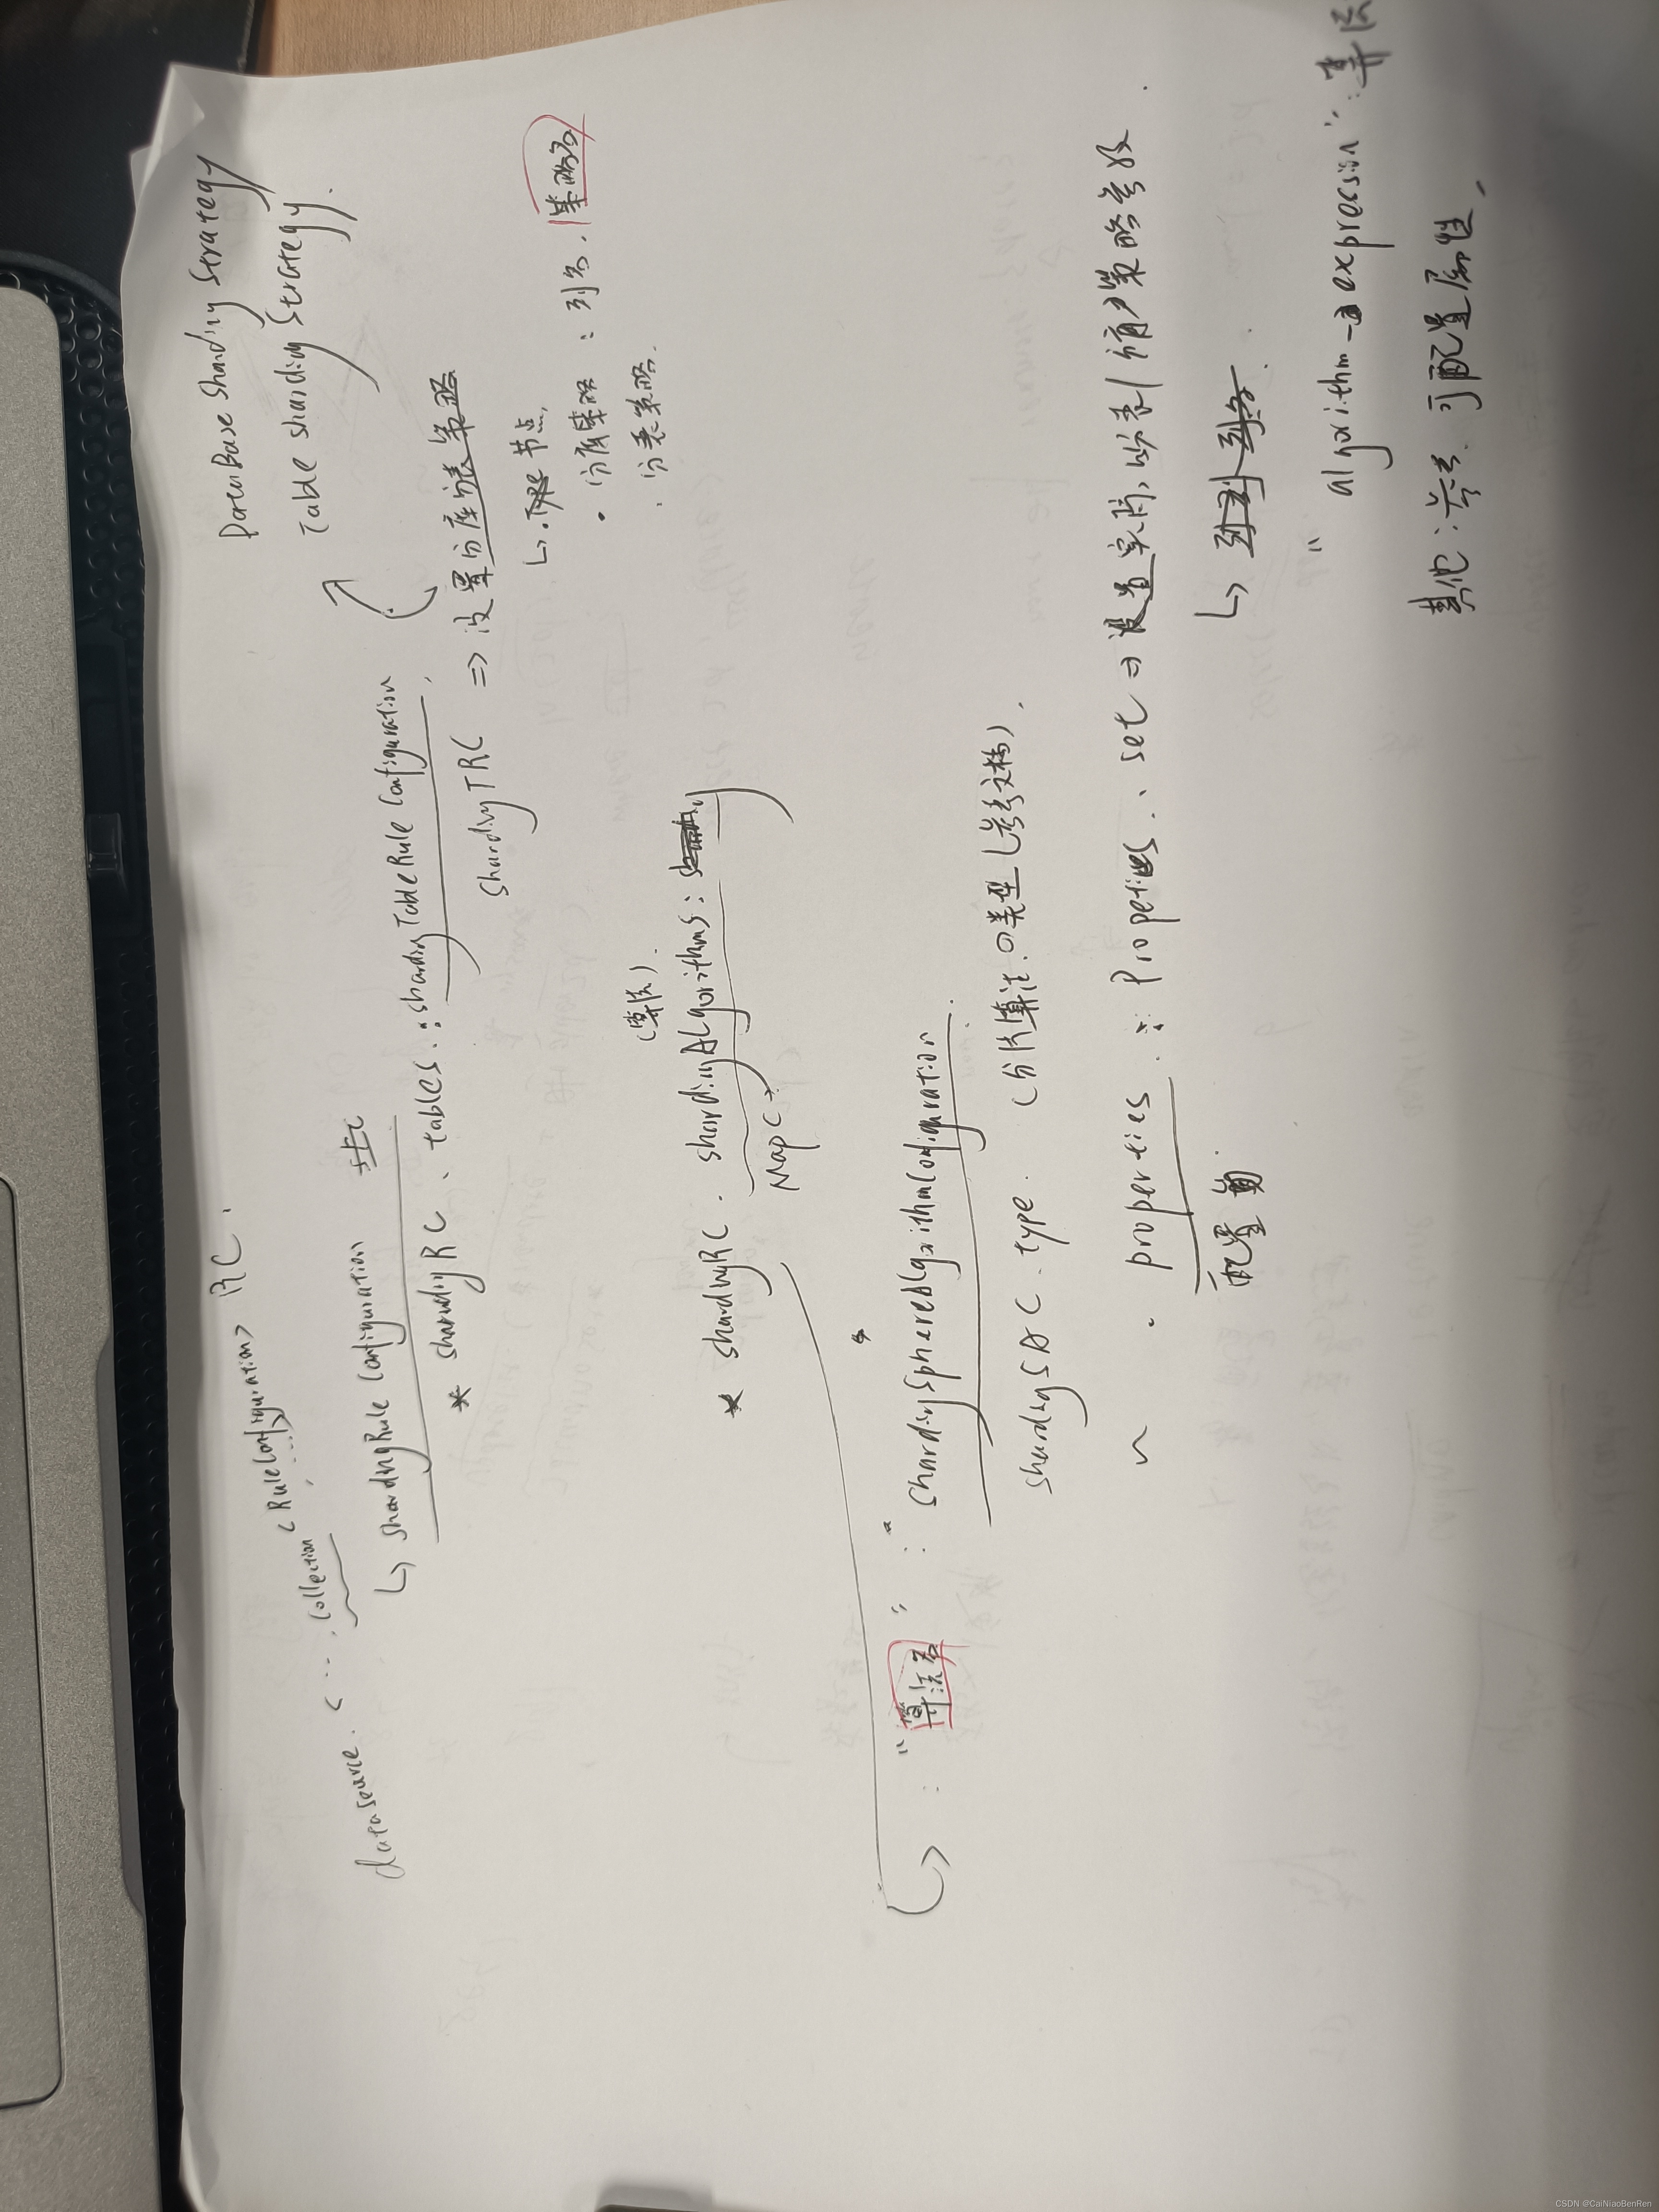 RC.
dataSource. < ... . Collection < RuleConfiguration >
DataBase Sharding Strategy
Table sharding Strategy.
↳ shardingRule Configuration
* shardingRC、tables : shardingTableRule Configuration
shardingTRC ⇒ 设置分库分表策略
↳ · 节点.
· 分库策略 : 列名. 策略名
· 分表策略.
(算法).
* shardingRC . shardingAlgorithms :
Map<>
: "算法名" : shardingSphereAlgorithmConfiguration.
shardingSAC . type. (分片算法の类型 (参考文档).
· properties . : Properties、set ⇒ 设置实际,分表/分库策略参数.
配置类.
↳
"algorithm-expression": 算法
其他:参考.可配置属性.
CSDN @CaiNiaoBenRen